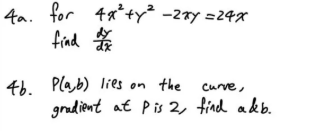 4a. for 4x²+y² -2xy =24x
find dy/dx
4b. P(a,b) lies on the curve,
gradient at P is 2, find a&b.